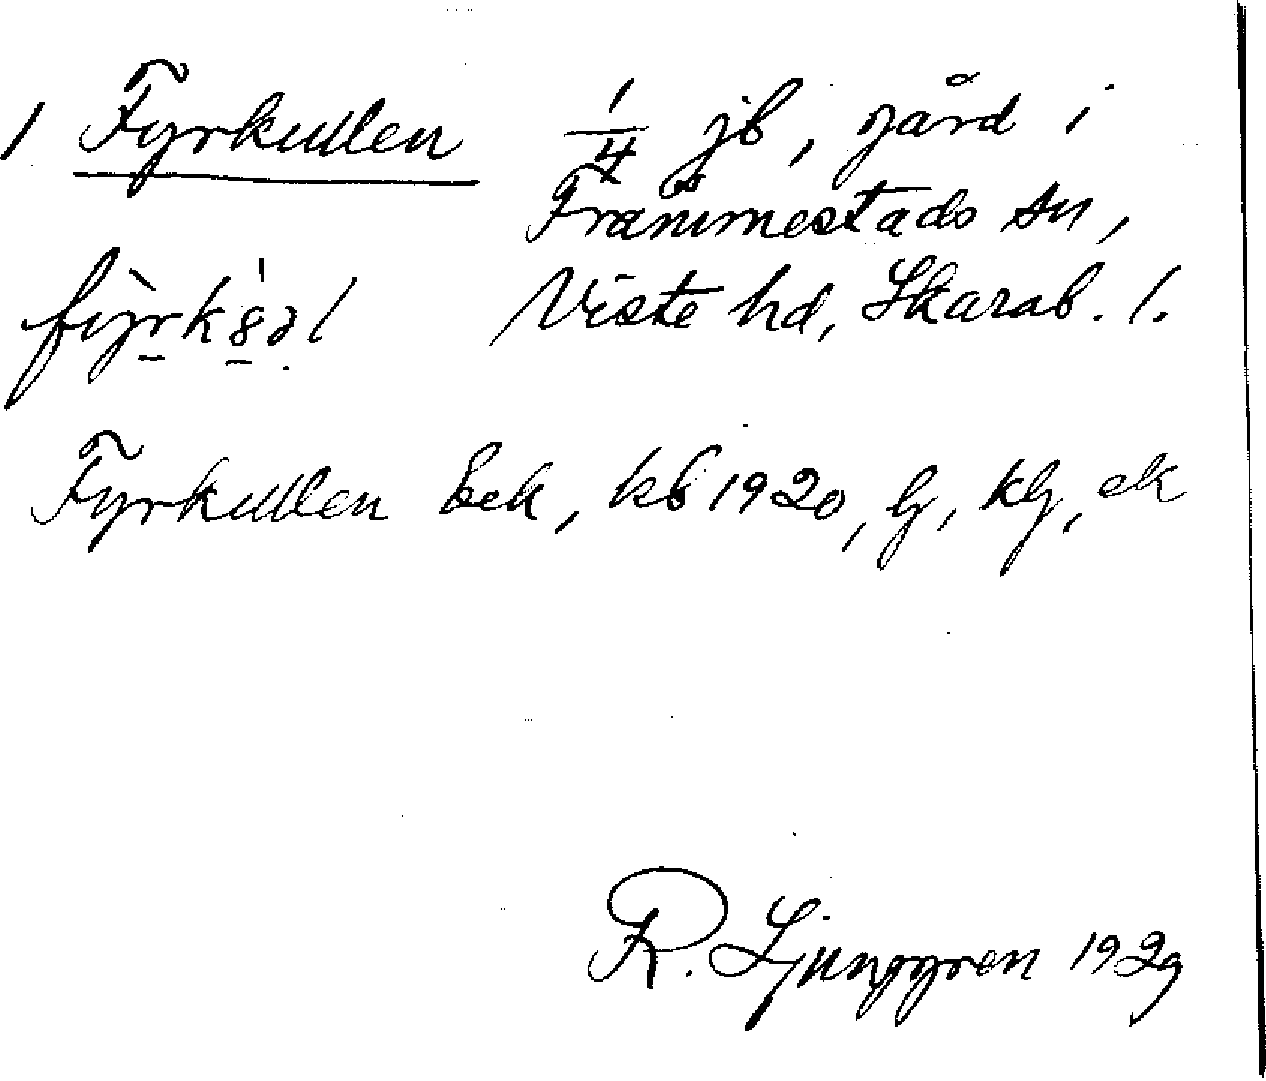 1 Fyrkullen 1/4 jb, gård i
Främmestads sn,
Viste hd, Skarab. l.
Fyrkullen Eek, kb 1920, lj, klj, ek
R. Ljunggren 1929